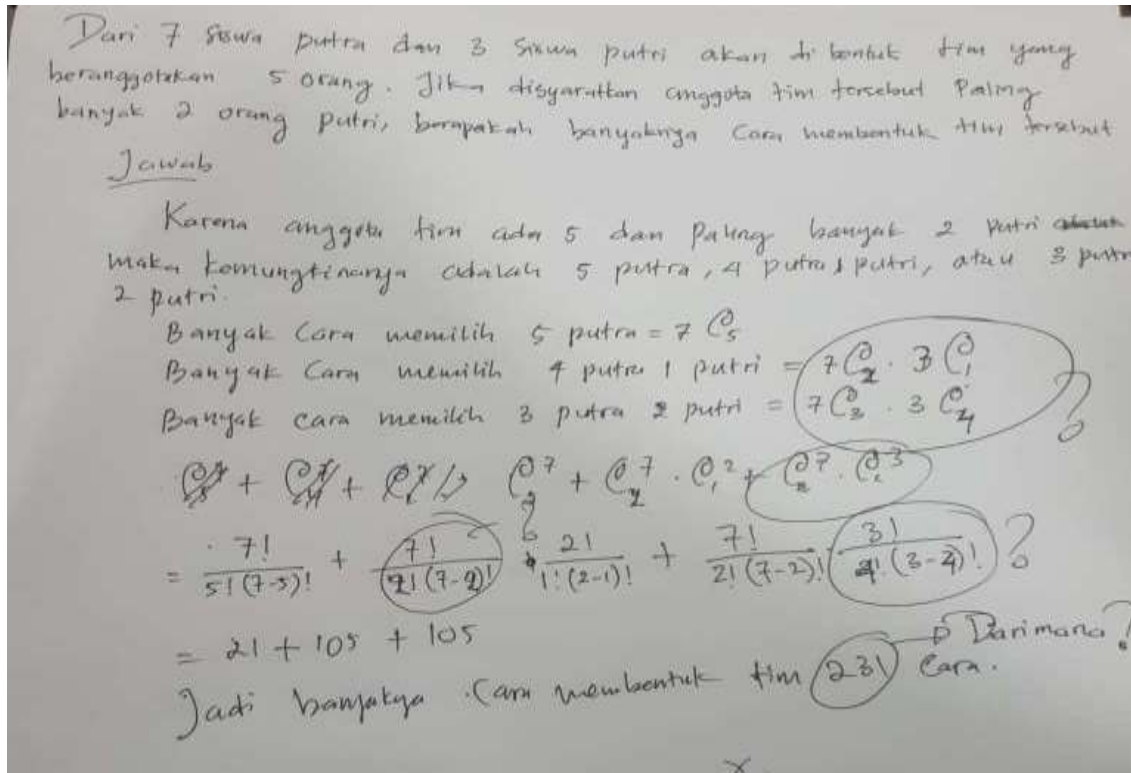 Dari 7 siswa putra dan 3 siswa putri akan di bentuk tim yang
beranggotakan 5 orang. Jika disyaratkan anggota tim tersebut Paling
banyak 2 orang putri, berapakah banyaknya Cara membentuk tim tersebut
Jawab
Karena anggota tim ada 5 dan Paling banyak 2 putri
maka kemungkinannya adalah 5 putra, 4 putra 1 putri, atau 3 putra
2 putri.
Banyak Cara memilih 5 putra = 7 C₅
Banyak Cara memilih 4 putra 1 putri = 7 C₂ . 3 C₁
Banyak cara memilih 3 putra 2 putri = 7 C₃ . 3 C ?
C⁷ + C⁷ . C₁² + C⁷ . C³
= 7!/5!(7-5)! + 7!/2!(7-2)! 2!/1!(2-1)! + 7!/2!(7-2)! 3!/(3-)! ?
= 21 + 105 + 105 Darimana?
Jadi banyakya Cara membentuk tim 231 Cara.